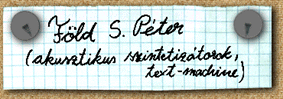 Föld S. Péter
(akusztikus szintetizátorok,
text-machine)